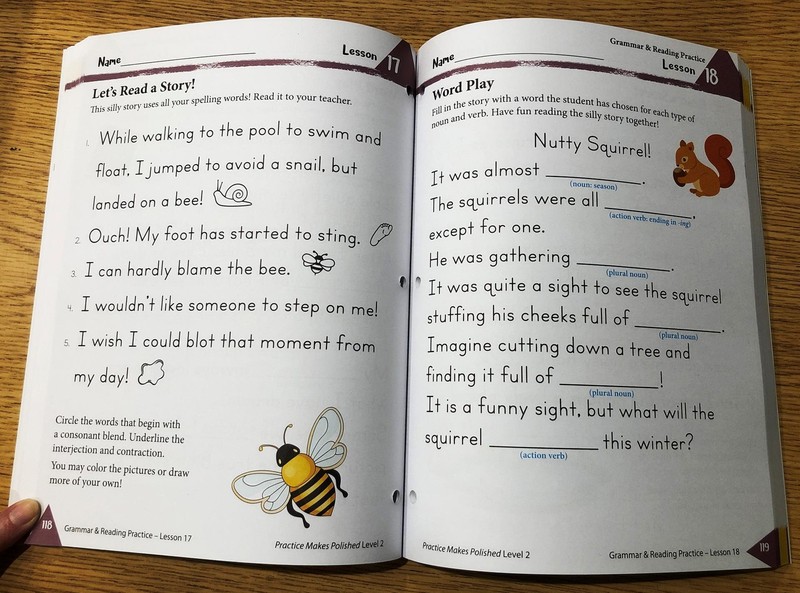 Name
Lesson 17
Let's Read a Story!
This silly story uses all your spelling words! Read it to your teacher.
1. While walking to the pool to swim and
float, I jumped to avoid a snail, but
landed on a bee!
2. Ouch! My foot has started to sting.
3. I can hardly blame the bee.
4. I wouldn't like someone to step on me!
5. I wish I could blot that moment from
my day!
Circle the words that begin with
a consonant blend. Underline the
interjection and contraction.
You may color the pictures or draw
more of your own!
118 Grammar & Reading Practice – Lesson 17
Practice Makes Polished Level 2
Grammar & Reading Practice
Name
Lesson 18
Word Play
Fill in the story with a word the student has chosen for each type of
noun and verb. Have fun reading the silly story together!
Nutty Squirrel!
It was almost ____________.
(noun: season)
The squirrels were all ____________.
(action verb: ending in -ing)
except for one.
He was gathering ____________.
(plural noun)
It was quite a sight to see the squirrel
stuffing his cheeks full of ____________.
(plural noun)
Imagine cutting down a tree and
finding it full of ____________!
(plural noun)
It is a funny sight, but what will the
squirrel ____________ this winter?
(action verb)
Practice Makes Polished Level 2
Grammar & Reading Practice – Lesson 18 119